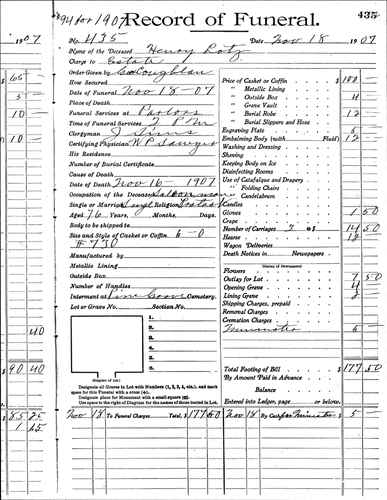 94 for 1907
Record of Funeral.
435
1907
No. 435
Date Nov 18 1907
Name of the Deceased Henry Lotz
Charge to Estate
Order Given by
How Secured
Date of Funeral Nov 18-07
Place of Death
Funeral Services at Parlors
Time of Funeral Services 2 P.M
Clergyman J Sims
Certifying Physician W P Sawyer
His Residence
Number of Burial Certificate
Cause of Death
Date of Death Nov 16 - 1907
Occupation of the Deceased
Single or Married Singl Religion
Aged 76 Years, Months, Days.
Body to be shipped to
Size and Style of Casket or Coffin 6-0
#730
Manufactured by
Metallic Lining
Outside Box
Number of Handles
Interment at Pine Grove Cemetery.
Lot or Grave No. Section No.
1.
2.
3.
4.
5.
6.
(Diagram of Lot.)
Designate all Graves in Lot with Numbers (1, 2, 3, 4, etc.), and mark
space for this Funeral with a cross (+).
Designate place for Monument with a small square (□).
Use space to the right of Diagram for the names of those buried in Lot.
Price of Casket or Coffin $ 100 —
" Metallic Lining
" Outside Box 4
" Grave Vault
" Burial Robe 12
" Burial Slippers and Hose
Engraving Plate
Embalming Body (with Fluid) 12
Washing and Dressing
Shaving
Keeping Body on Ice
Disinfecting Rooms
Use of Catafalque and Drapery
" Folding Chairs
" Candelabrum
Candles
Gloves 1 50
Crape
Number of Carriages @ $ 14 50
Hearse
Wagon Deliveries
Death Notices in Newspapers
(Names of Newspapers)
Flowers
Outlay for Lot 7 50
Opening Grave 4
Lining Grave 2
Shipping Charges, prepaid
Removal Charges
Cremation Charges
Minister 5
Total Footing of Bill $ 177 50
By Amount Paid in Advance
Balance
Entered into Ledger, page or below.
Nov 18 To Funeral Charges Total, $ 177 50
Nov 18 By Cash for Minister $ 5 —
65 —
5 —
10 —
10 —
40
$ 90 40
$ 85 25